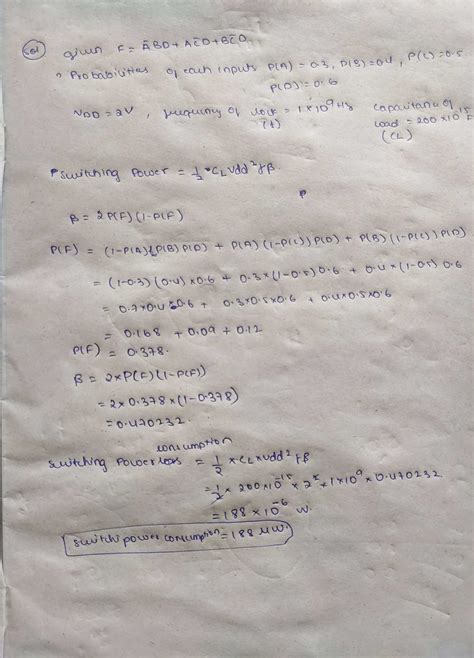 Sol
given F = ĀBD + AC̄D + BC̄D
Probabilities of each inputs P(A) = 0.3, P(B) = 0.4, P(C) = 0.5
P(D) = 0.6
VDD = 2V, frequency of clock = 1 x 10⁹ Hz capacitance of
(f) load = 200 x 10⁻¹⁵
(CL)
Switching Power = 1/2 * CL Vdd² f β.
β = 2P(F)(1-P(F)
P(F) = (1-P(A)) P(B) P(D) + P(A) (1-P(C)) P(D) + P(B) (1-P(C)) P(D)
= (1-0.3) (0.4) x 0.6 + 0.3 x (1-0.5) 0.6 + 0.4 x (1-0.5) 0.6
= 0.7x0.4x0.6 + 0.3x0.5x0.6 + 0.4x0.5x0.6
= 0.168 + 0.09 + 0.12
P(F) = 0.378.
β = 2xP(F)(1-P(F))
= 2x 0.378x(1-0.378)
= 0.470232.
consumption
switching Power = 1/2 x CL x Vdd² f β
= 1/2 x 200x10⁻¹⁵ x 2² x 1x10⁹ x 0.470232
= 188 x 10⁻⁶ W.
switch power consumption = 188 μW.